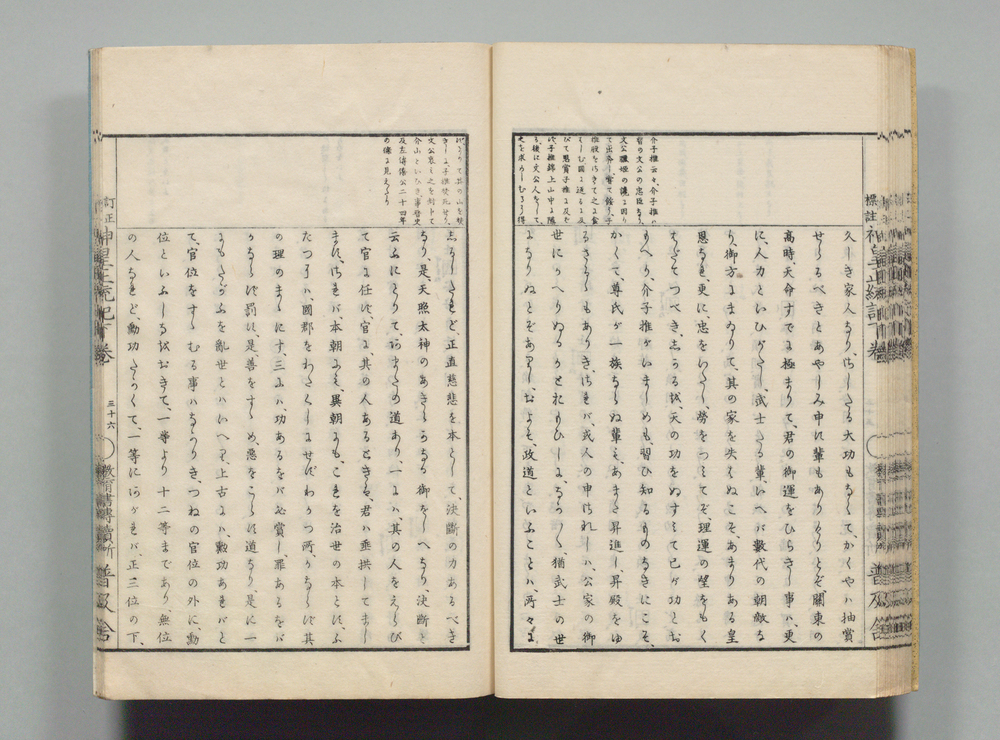 標註神皇正統記下卷
普及舍
介子推云々、介子推ハ
晉の文公の忠臣なり、
文公驪姫の讒に因り
て出奔し嘗て餓う、子
推股をさきて之に食
せしむ國に返るに及
びて恩賞子推に及ば
ず子推綿上山中に隱
る、後に文公人をして
之を求めしむるも得
久しき家人なり、させる大功もなくて、かくやは抽賞
せらるべきとあやしみ申す輩もありけりとぞ、關東の
高時天命すでに極まりて、君の御運をひらきし事は、更
に、人力といひがたし、武士たる輩、いへば數代の朝敵な
り、御方にまゐりて、其の家を失はぬこそ、あまりある皇
恩なれ、更に、忠をいたし、勞をつみてぞ理運の望をもく
はだてつべき、しかるを、天の功をぬすみて己が功とお
もへり、介子推がいましめも、習ひ知るものなきにこそ、
かくて、尊氏が一族ならぬ輩も、あまた昇進し、昇殿をゆ
るさるゝもありき、されば、或人の申されしは、公家の御
世にかへりぬるかとおもひしに、なか〳〵、猶武士の世
になりぬとぞありし、およそ、政道といふことは、所々に
ず、よりて其の山を焚
きしに、子推焚死せり、
文公哀み之を封して
介山といひき事晉史
及左傳僖公二十四年
の傳に見えたり
しるしたれど、正直慈悲を本として、決斷の力あるべき
なり、是、天照太神のあきらかなる御をしへなり、決斷と
云ふにとりて、あまたの道あり、一には其の人をえらび
て官に任ず、官に其の人あるときは、君は垂拱してまし
ます、されば、本朝にも、異朝にも、これを治世の本とす、ふ
たつには、國郡をわたくしにせず、わかつ所かならず其
の理のまゝにす、三には、功あるをば必賞し、罪あるをば
かならず罰す、是、善をすゝめ、惡をこらす道なり、是に一
もたがふを亂世とはいへり、上古には、勳功あればと
て、官位をすゝむる事はなかりき、つねの官位の外に、勳
位といふしなをおきて、一等より十二等まであり、無位
の人なれど、勳功たかくて、一等にあがれば、正三位の下、
訂正神皇正統記下卷
三十六
教育書專賣所 普及舍